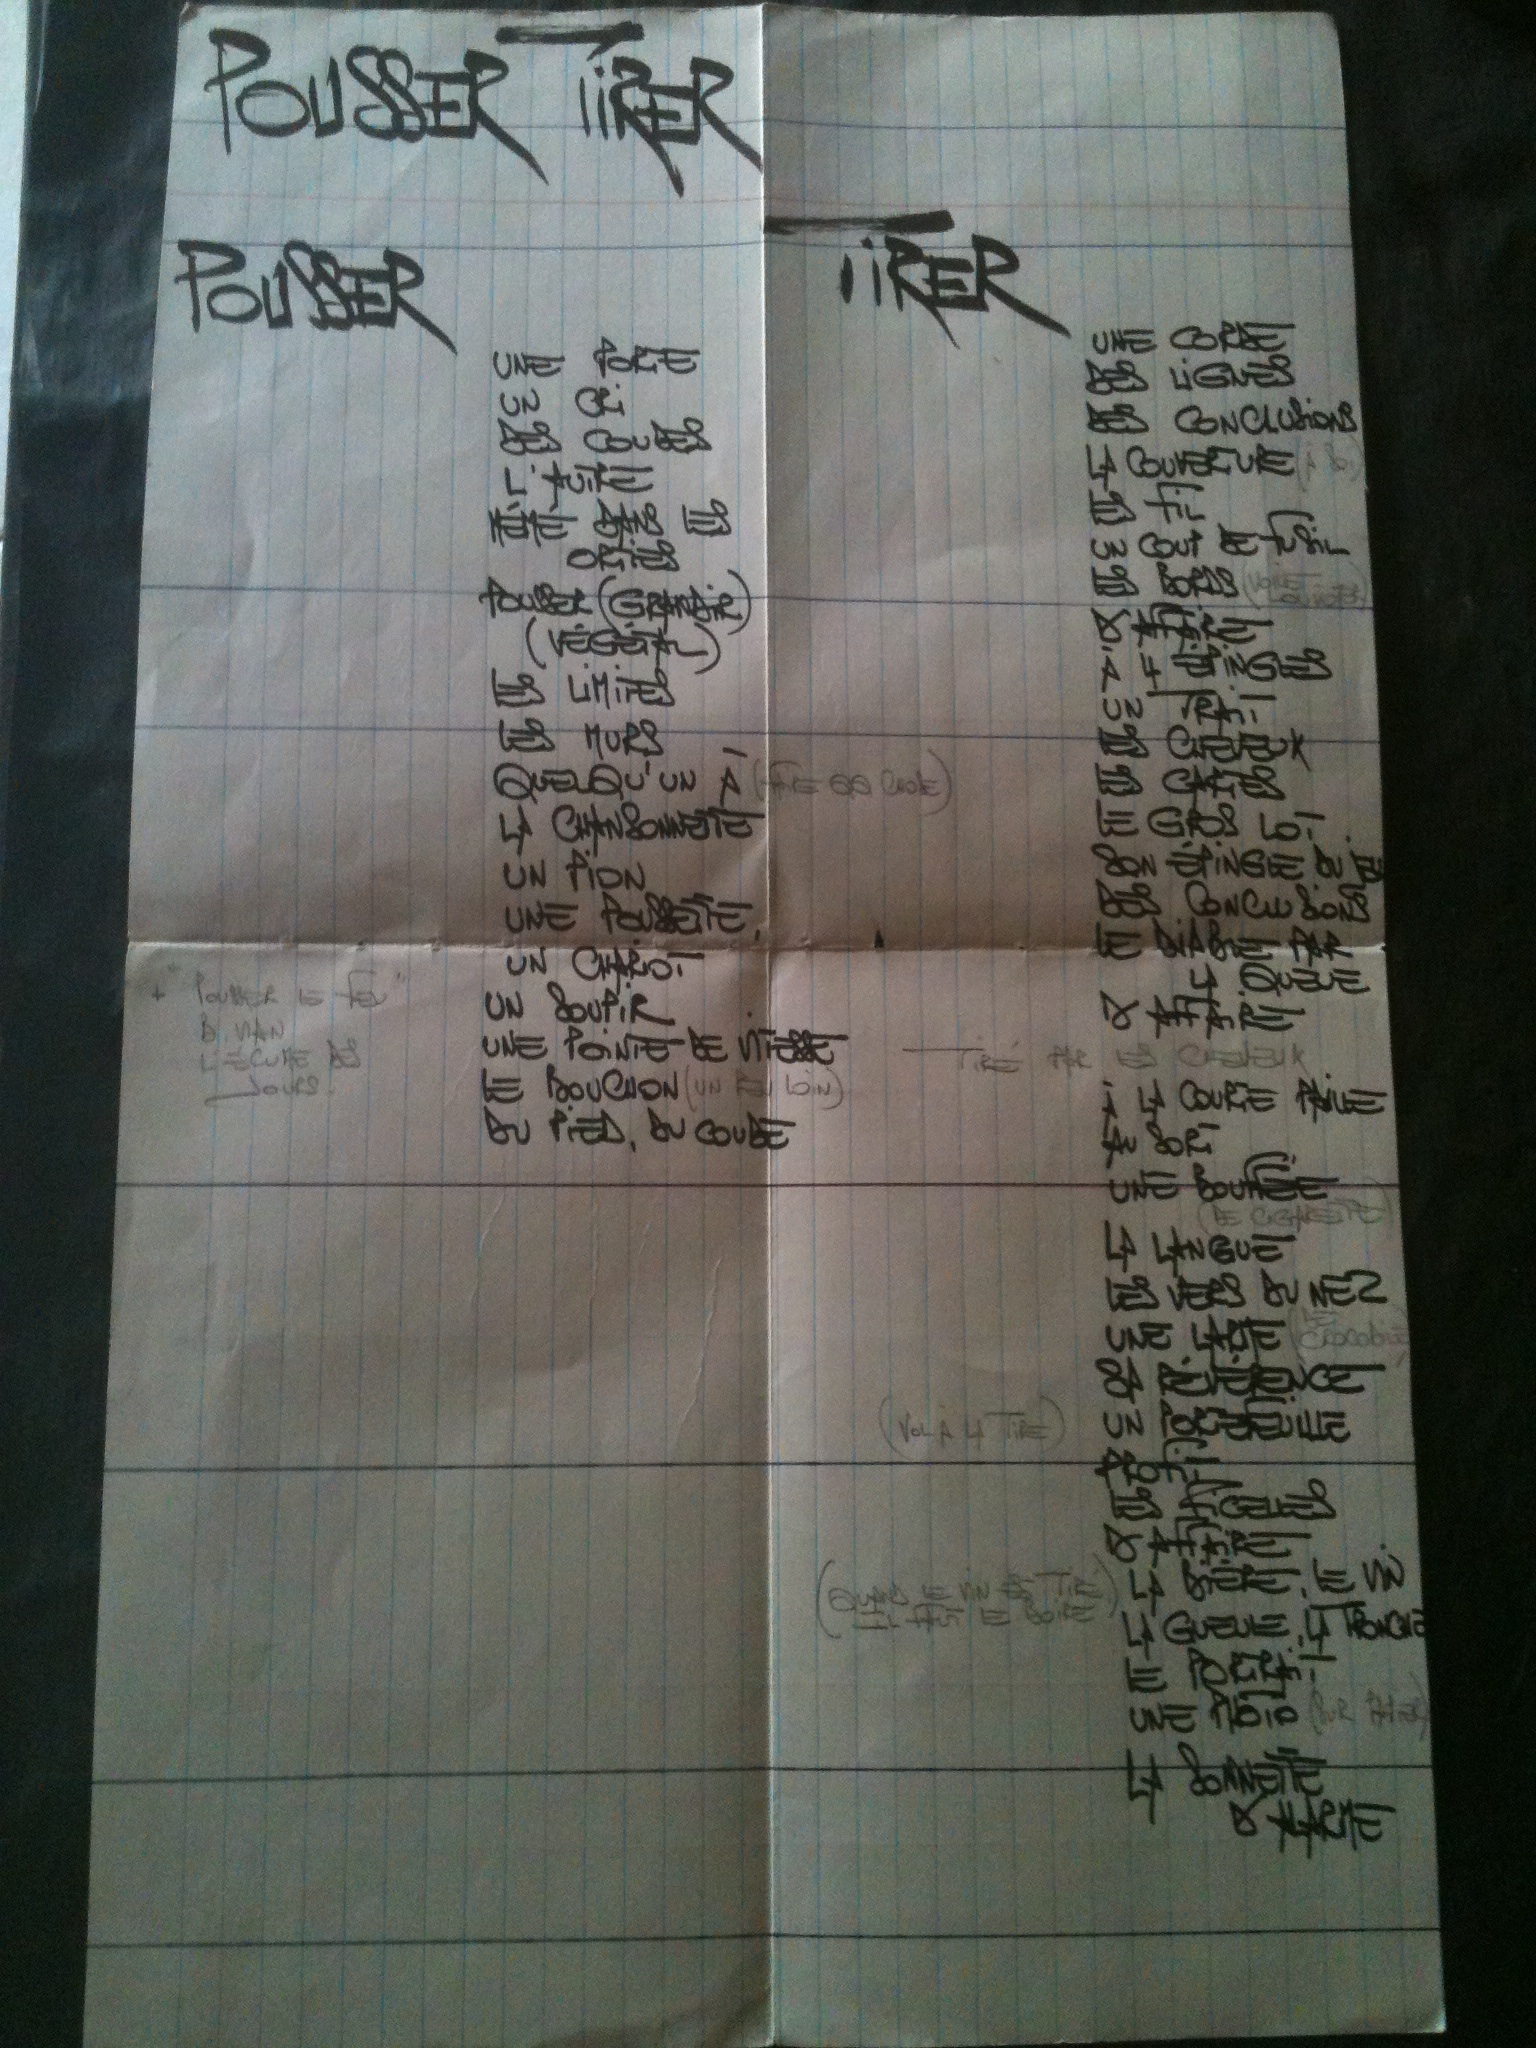 POUSSER TIRER
POUSSER
UNE PORTE
UN CRI
DES COUDES
L'AUTRE
MÉMÉ DANS LES
ORTIES
POUSSER (GRANDIR)
(VÉGÉTAL)
LES LIMITES
LES MURS
QUELQU'UN À (FRE QQ CHOSE)
LA CHANSONNETTE
UN PION
UNE POUSSETTE,
UN CHARIOT
UN SOUPIR
UNE POINTE DE VITESSE
LE BOUCHON (UN PEU LOIN)
DU PIED, DU COUDE
+ "POUSSER LE FEU"
B. VIAN
L'ÉCUME DES
JOURS.
TIRER
UNE CORDE
DES LIGNES
DES CONCLUSIONS
LA COUVERTURE (À SOI)
LES FIL
UN COUP DE FUSIL
LES BORDS
D'AFFAIRE
À 4 ÉPINGLES
UN TRAIT
LES CHEVEUX
LES CARTES
LE GROS LOT
SON ÉPINGLE DU JEU
DES CONCLUSIONS
LE DIABLE PAR
LA QUEUE
D'AFFAIRE
TIRÉ PAR LES CHEVEUX
À LA COURTE PAILLE
AU SORT
UNE BOUFFÉE
(DE CIGARETTE)
LA LANGUE
LES VERS DU NEZ
UNE LARME (DE
CROCODILE)
SA RÉVÉRENCE
(VOL À LA TIRE) UN PORTEFEUILLE
PROFIT
LES FICELLES
D'AFFAIRE
(QUAND LE VIN EST TIRÉ, LA BIÈRE, LE VIN
IL FAUT LE BOIRE)
LA GUEULE, LA TRONCHE
LE PORTRAIT
UNE PHOTO (SUR PAPIER)
LA SONNETTE
D'ALARME